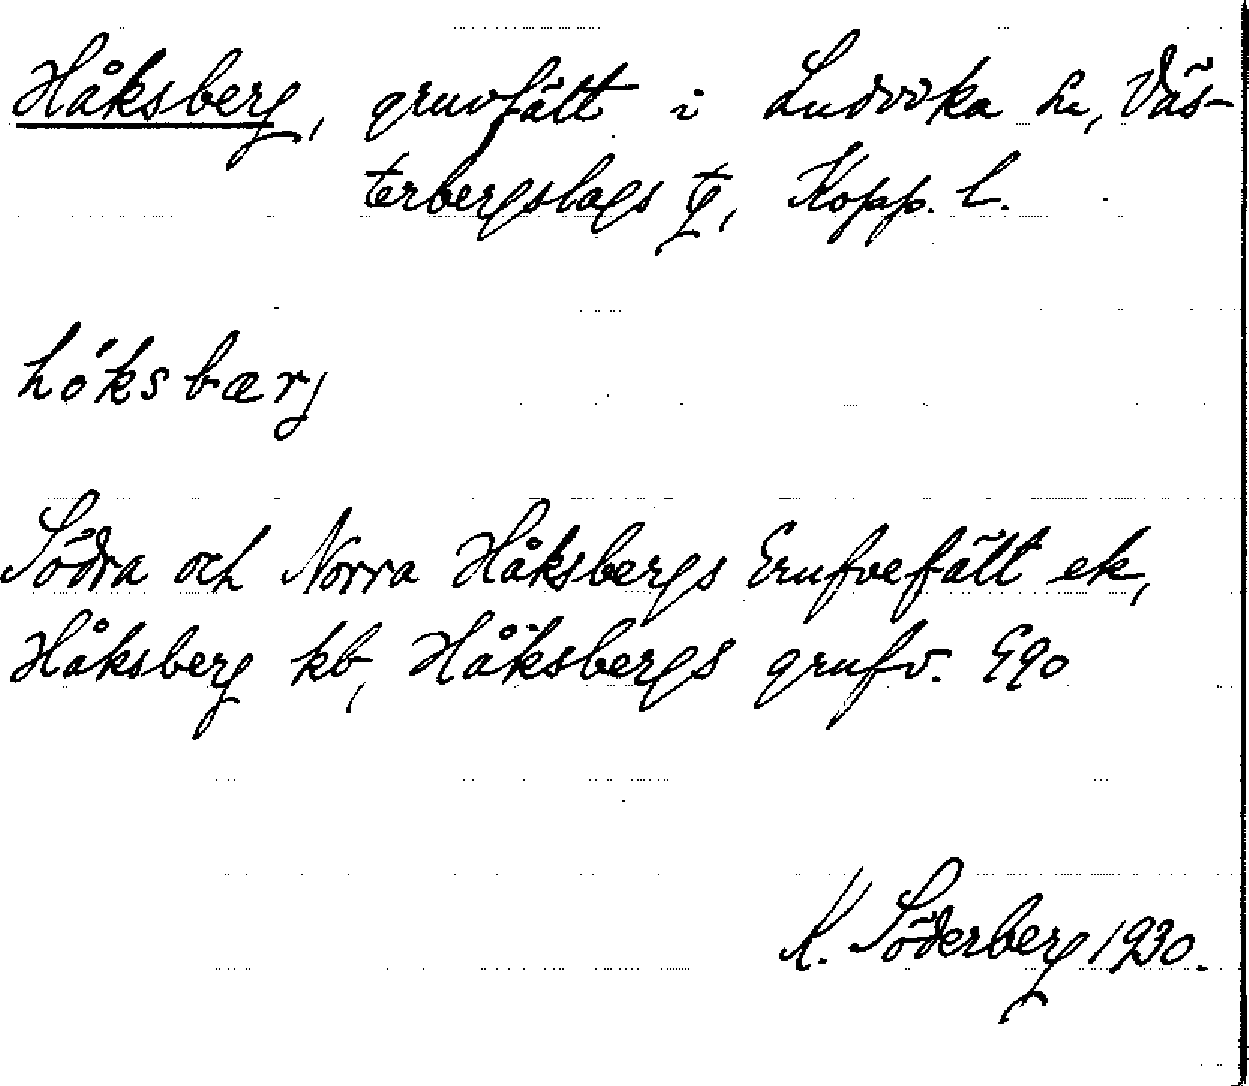 Håksberg, gruvfält i Ludvika sn, Väs-
terbergslags tg, Kopp. l.
hóksbærj
Södra och Norra Håksbergs Grufvefält ek,
Håksberg kb, Håksbergs grufv. Ego
K. Söderberg 1930.